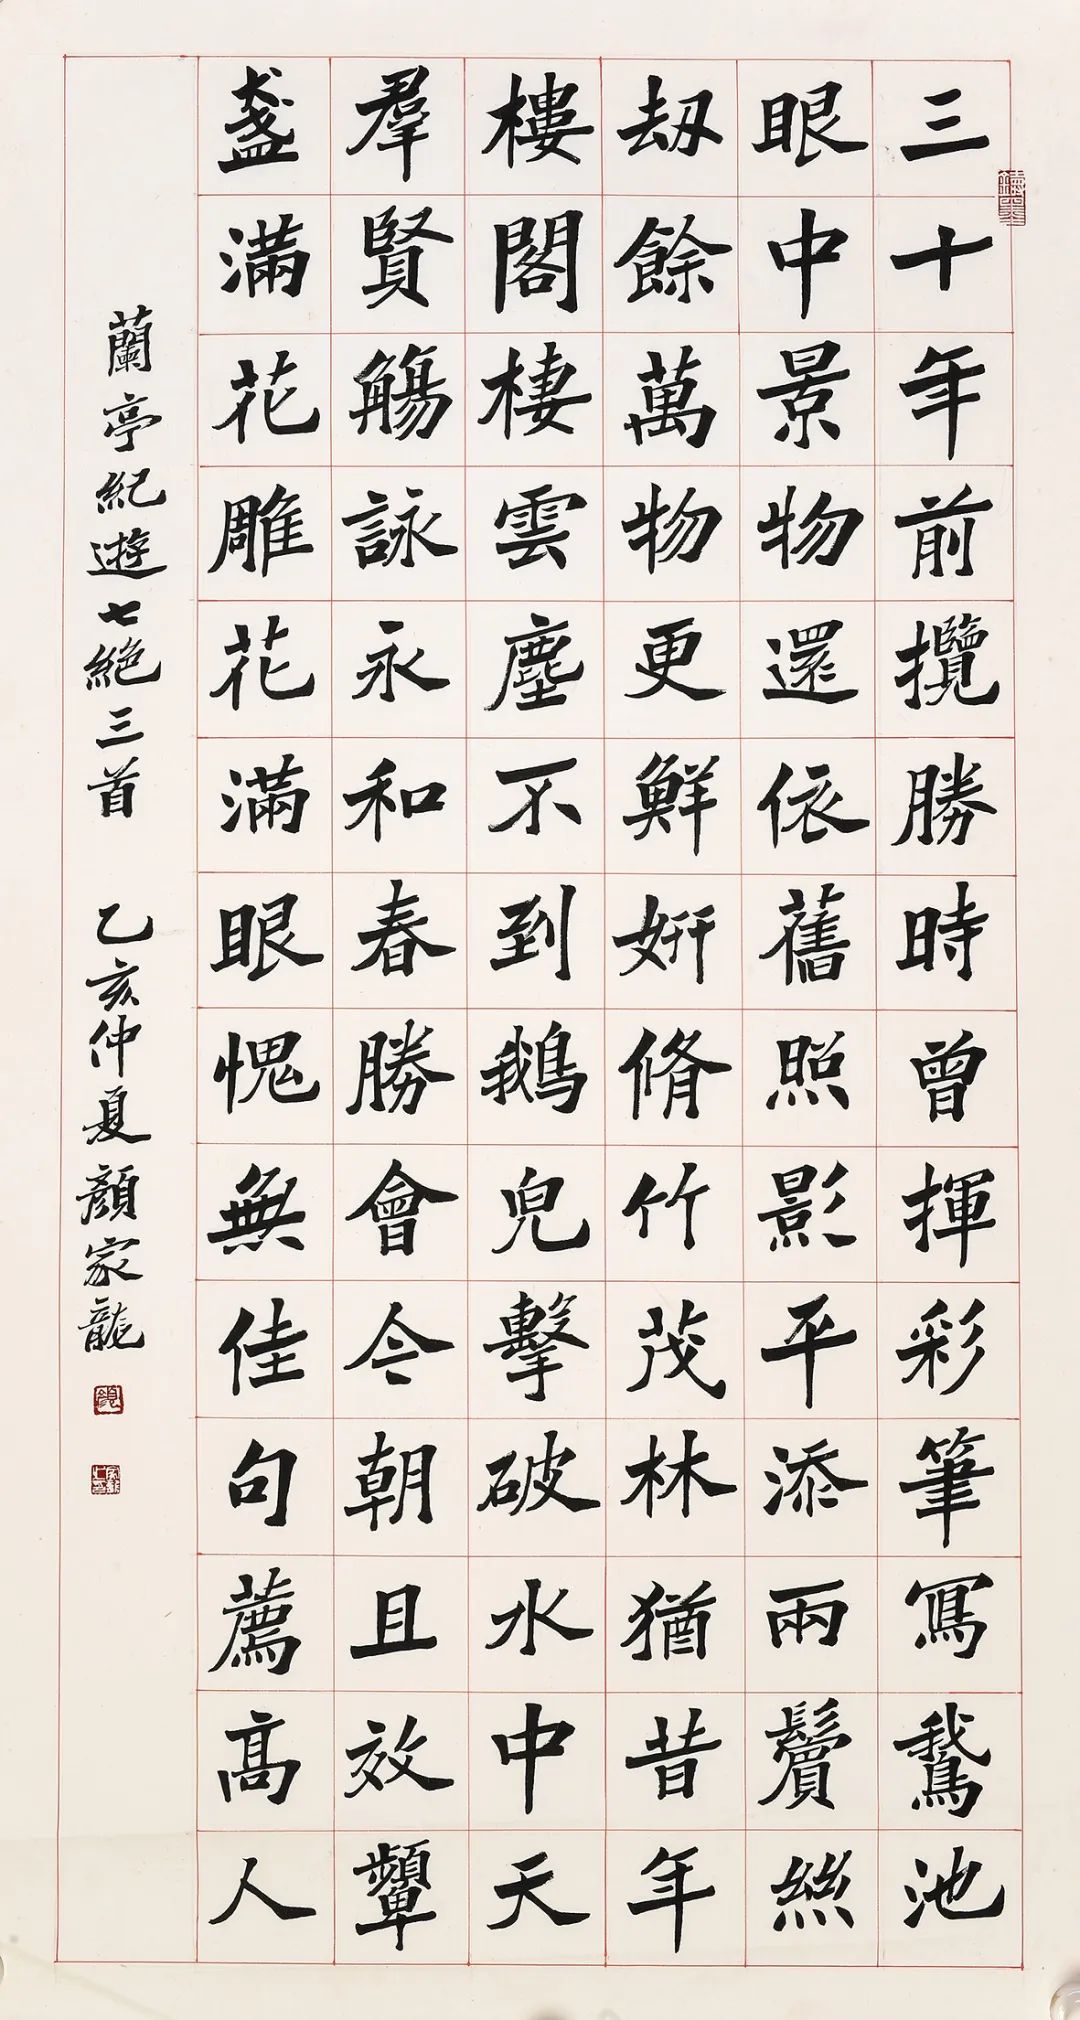 三十年前攬勝時曾揮彩筆寫鵞池
眼中景物還依舊照影平添兩鬢絲
劫餘萬物更鮮妍脩竹茂林猶昔年
樓閣棲雲塵不到鵝兒擊破水中天
羣賢觴詠永和春勝會今朝且效顰
盞滿花雕花滿眼愧無佳句薦高人
蘭亭紀遊七絕三首 乙亥仲夏顏家龍